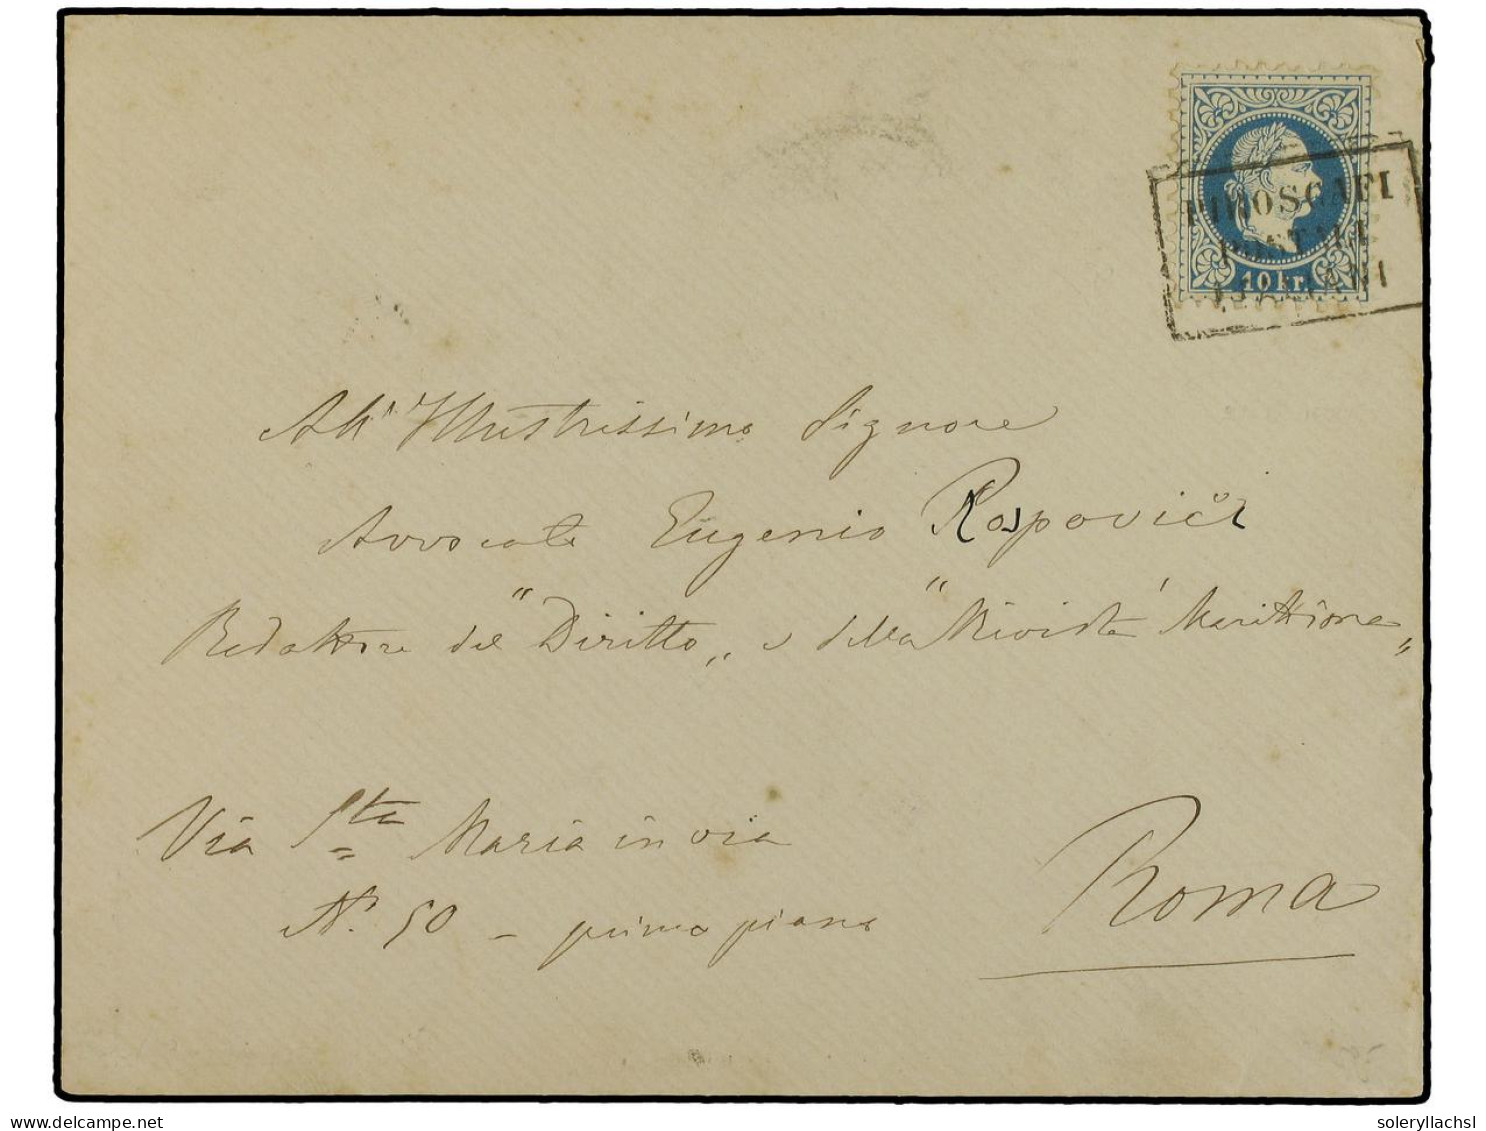 PIROSCAFI
POSTALI
ITALIANI
10 kr.
All' Illustrissimo Signore
Avvocato Eugenio Raspovići
Redattore del "Diritto„ e della "Rivista Marittima„
Via Sta Maria in via
N. 50 - primo piano
Roma
delcampe.net
soleryllachsl